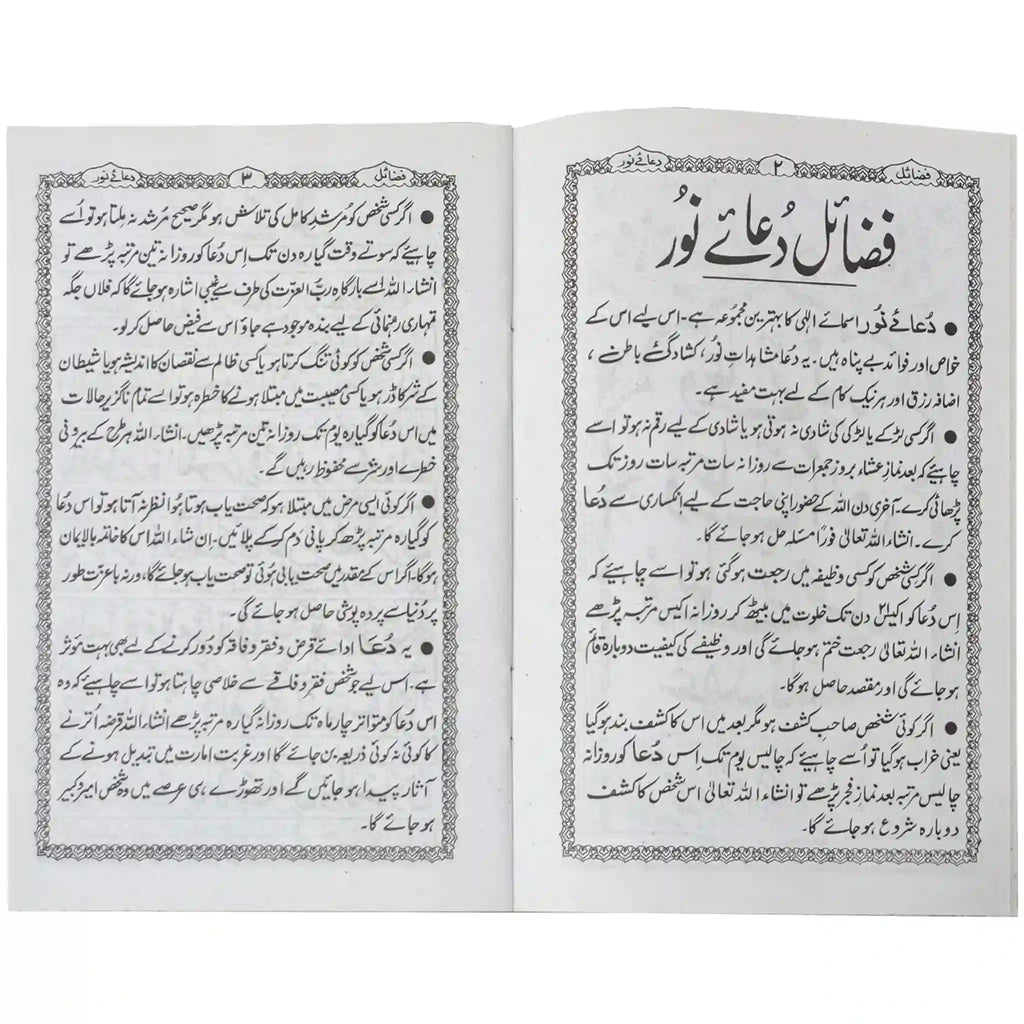 فضائل ۲ دعائے نور
فضائل دُعائے نُور
● دُعائے نُور اسمائے الٰہی کا بہترین مجموعہ ہے۔ اس لیے اس کے
خواص اور فوائد بے پناہ ہیں۔ یہ دُعا مشاہداتِ نُور، کشادگئے باطنے ،
اضافہ رزق اور ہر نیک کام کے لیے بہت مفید ہے۔
● اگر کسی لڑکے یا لڑکی کی شادی نہ ہوتی ہو یا شادی کے لیے رقم نہ ہو تو اسے
چاہیئے کہ بعد نمازِ عشاء بروز جمعرات سے روزانہ سات مرتبہ سات روز تک
پڑھائی کرے۔ آخری دن اللہ کے حضور اپنی حاجت کے لیے انکساری سے دُعا
کرے۔ انشاء اللہ تعالیٰ فوراً مسئلہ حل ہو جائے گا۔
● اگر کسی شخص کو کسی وظیفہ میں رجعت ہو گئی ہو تو اسے چاہیئے کہ
اِس دُعا کو اکیس ۲۱ دن تک خلوت میں بیٹھ کر روزانہ اکیس مرتبہ پڑھے
انشاء اللہ تعالیٰ رجعت ختم ہو جائے گی اور وظیفے کی کیفیت دوبارہ قائم
ہو جائے گی اور مقصد حاصل ہو گا۔
● اگر کوئی شخص صاحب کشف ہو مگر بعد میں اس کا کشف بند ہو گیا
یعنی خراب ہو گیا تو اُسے چاہیئے کہ چالیس یوم تک اِس دُعا کو روزانہ
چالیس مرتبہ بعد نماز فجر پڑھے تو انشاء اللہ تعالیٰ اس شخص کا کشف
دوبارہ شروع ہو جائے گا۔
فضائل ۳ دعائے نور
● اگر کسی شخص کو مُرشدِ کامل کی تلاش ہو مگر صحیح مرشد نہ ملتا ہو تو اُسے
چاہیئے کہ سوتے وقت گیارہ دن تک اِس دُعا کو روزانہ تین مرتبہ پڑھے تو
انشاء اللہ اسے بارگاہ ربّ العزت کی طرف سے غیبی اشارہ ہو جائے گا کہ فلاں جگہ
تمہاری رہنمائی کے لیے بندہ موجود ہے جاؤ اس سے فیض حاصل کر لو۔
● اگر کسی شخص کو کوئی تنگ کرتا ہو یا کسی ظالم سے نقصان کا اندیشہ ہو یا شیطان
کے شر کا ڈر ہو یا کسی مصیبت میں مبتلا ہونے کا خطرہ ہو تو ایسے تمام ناگزیر حالات
میں اس دُعا کو گیارہ یوم تک روزانہ تین مرتبہ پڑھیں۔ انشاء اللہ ہر طرح کے بیرونی
خطرے اور شر سے محفوظ رہیں گے۔
● اگر کوئی ایسی مرض میں مبتلا ہو کہ صحت یاب ہوتا ہُوا نظر نہ آتا ہو تو اس دُعا
کو گیارہ مرتبہ پڑھ کر پانی دَم کر کے پلائیں۔ اِن شاء اللہ اس کا خاتمہ بالایمان
ہو گا۔ اگر اس کے مقدر میں صحت یابی ہوئی تو صحت یاب ہو جائے گا، ورنہ باعزت طور
پر دُنیا سے پردہ پوشی حاصل ہو جائے گی۔
● یہ دُعا ادائے قرض و فقر و فاقہ کو دُور کرنے کے لیے بھی بہت مؤثر
ہے۔ اس لیے جو شخص فقر و فاقے سے خلاصی چاہتا ہو تو اسے چاہیئے کہ وہ
اس دُعا کو متواتر چار ماہ تک روزانہ گیارہ مرتبہ پڑھے انشاء اللہ قرضہ اُترنے
کا کوئی نہ کوئی ذریعہ بن جائے گا اور غربت امارت میں تبدیل ہونے کے
آثار پیدا ہو جائیں گے اور تھوڑے ہی عرصے میں وہ شخص امیر و کبیر
ہو جائے گا۔